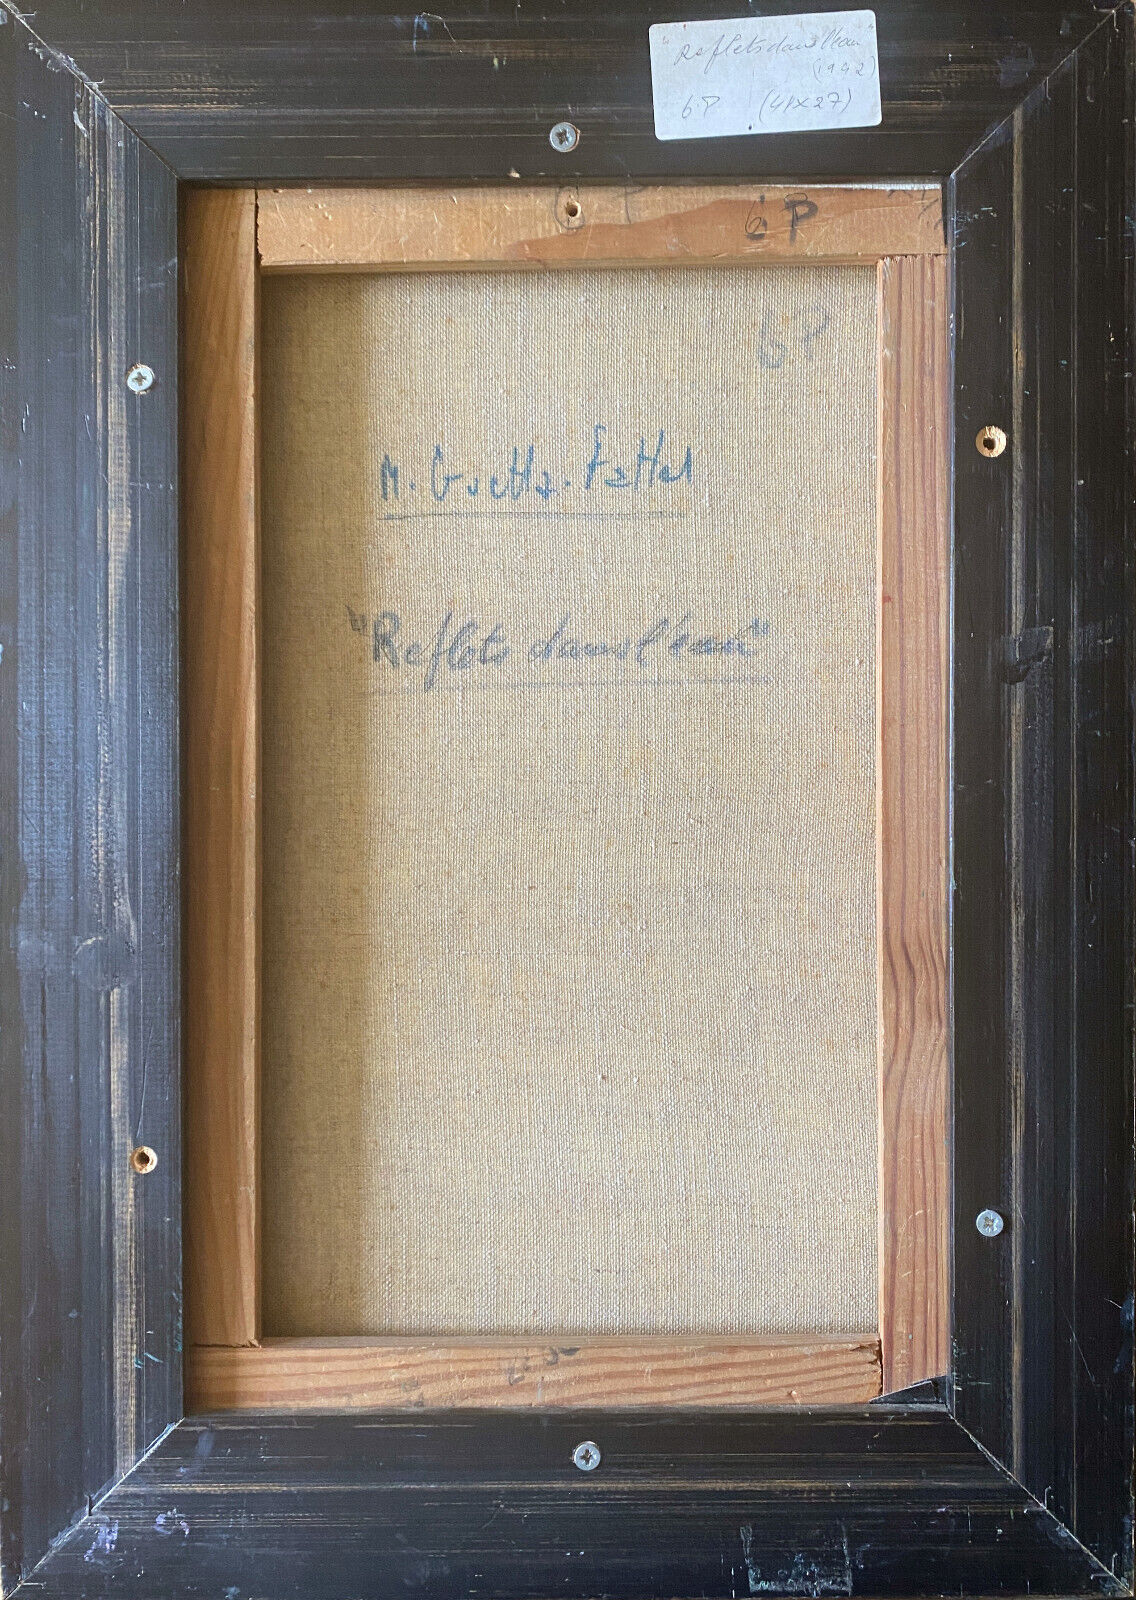 "Reflets dans l'eau"
(1992)
6P (41x27)
6 P
6 P
6P
M. Guetta. Fattal
"Reflets dans l'eau"